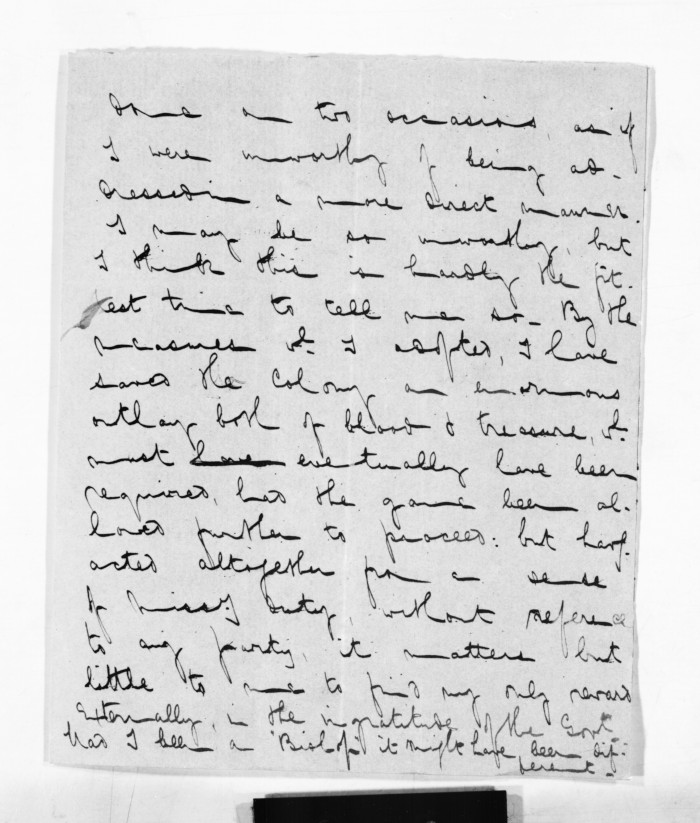 some on two occasions, as if
I were unworthy of being ad-
dressed in a more direct manner.
I may be so unworthy, but
I think this is hardly the fit-
test time to tell me so. By the
measures wh. I adopted, I have
saved the Colony an enormous
outlay both of blood & treasure, wh.
must have eventually have been
required, had the game been al-
lowed further to proceed: but havg.
acted altogether from a sense
of duty, without reference
to any party, it matters but
little to me to find my only reward
Externally, in the ingratitude of the Govt.
Had I been a "Bishop" it might have been dif-
ferent.